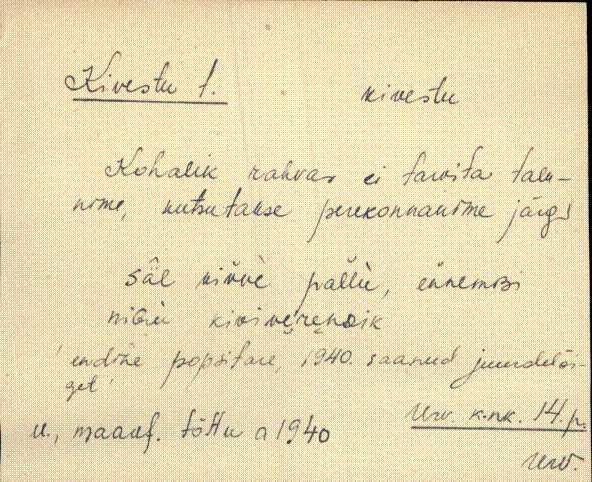 Kivestu t. kivestu
Kohalik rahvas ei tarvita talu-
nime, kutsutakse perekonnanime järgi
säl kivve pallu, ennembi
nigu kivivereṇdik
'endine popsitare, 1940. saanud juurdelõi-
get'
u., maaref. tõttu a 1940
Urv. k.nk. 14. p.
Urv.